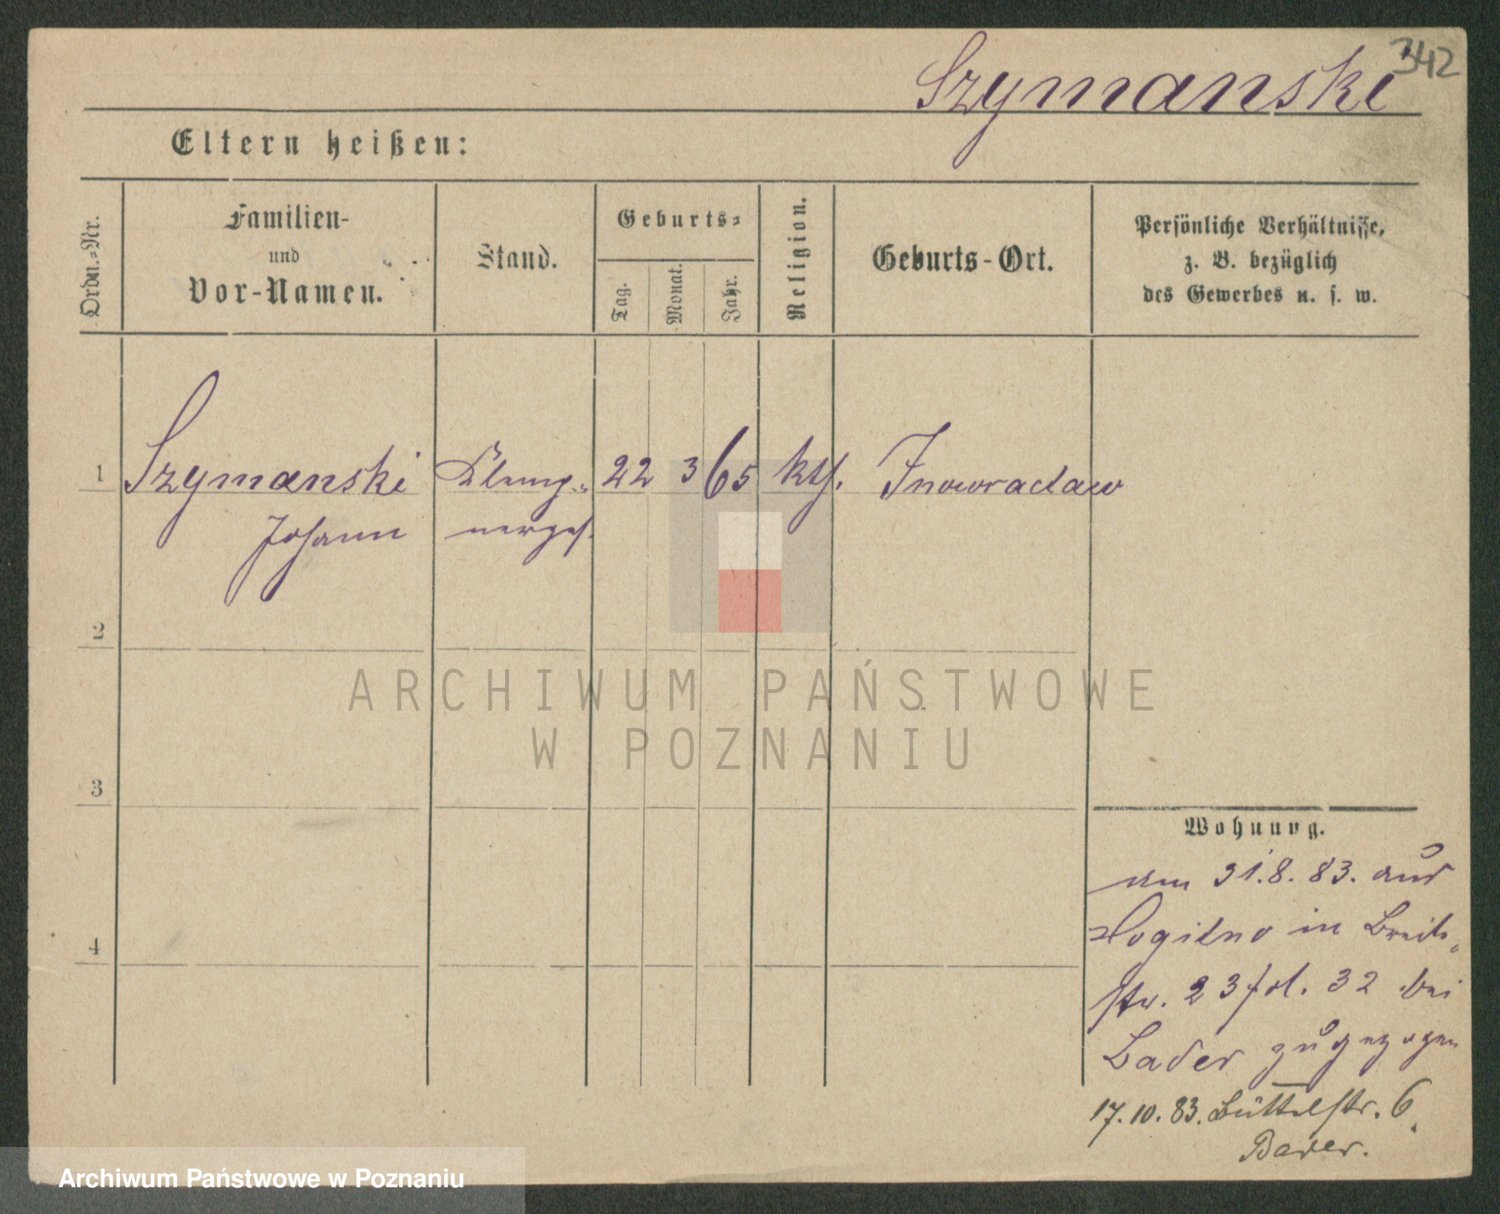 342
Szymanski
Eltern heißen:
Ordn.-Nr.
Familien-
und
Vor-Namen.
Stand.
Geburts-
Tag.
Monat.
Jahr.
Religion.
Geburts-Ort.
Persönliche Verhältnisse,
z. B. bezüglich
des Gewerbes u. s. w.
1 Szymanski Klemp- 22 3 65 kth. Inowraclaw
Johann nerges.
2
ARCHIWUM PAŃSTWOWE
W POZNANIU
3
Wohnung.
am 31.8.83. aus
Mogilno in Breite-
4
str. 23 fol. 32 bei
Bader zugezogen
17.10.83. Büttelstr. 6.
Bader.
Archiwum Państwowe w Poznaniu